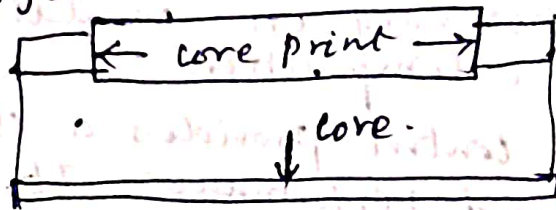 core print
core.